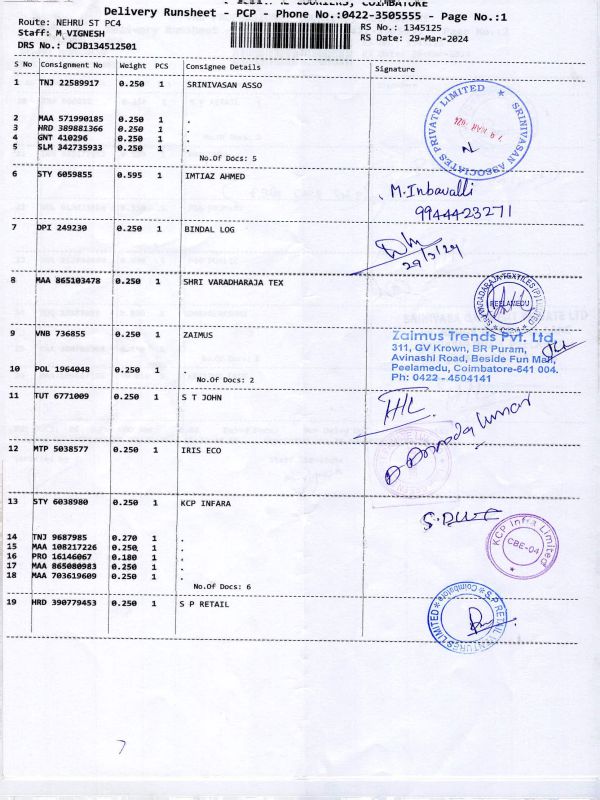 COURIERS, COIMBATORE
Delivery Runsheet - PCP - Phone No.:0422-3505555 - Page No.:1
Route: NEHRU ST PC4
RS No.: 1345125
Staff: M VIGNESH
RS Date: 29-Mar-2024
DRS No.: DCJB134512501
S No Consignment No Weight PCS Consignee Details Signature
1 TNJ 22589917 0.250 1 SRINIVASAN ASSO
2 MAA 571990185 0.250 1 .
3 HRD 389881366 0.250 1 .
4 GNT 410296 0.250 1 .
5 SLM 342735933 0.250 1 .
No.Of Docs: 5
SRINIVASAN ASSOCIATES PRIVATE LIMITED ★
6 STY 6059855 0.595 1 IMTIAZ AHMED
M.Inbavalli
9944423271
7 DPI 249230 0.250 1 BINDAL LOG
29/3/24
8 MAA 865103478 0.250 1 SHRI VARADHARAJA TEX
PEELAMEDU
9 VNB 736855 0.250 1 ZAIMUS
Zaimus Trends Pvt. Ltd.
311, GV Krown, BR Puram,
Avinashi Road, Beside Fun Mall,
Peelamedu, Coimbatore-641 004.
Ph: 0422 - 4504141
10 POL 1964048 0.250 1 .
No.Of Docs: 2
11 TUT 6771009 0.250 1 S T JOHN
12 MTP 5038577 0.250 1 IRIS ECO
13 STY 6038980 0.250 1 KCP INFARA
KCP Infra Limited
CBE-04
14 TNJ 9687985 0.270 1 .
15 MAA 108217226 0.250 1 .
16 PRO 16146067 0.180 1 .
17 MAA 865080983 0.250 1 .
18 MAA 703619609 0.250 1 .
No.Of Docs: 6
19 HRD 390779453 0.250 1 S P RETAIL
S.P RETAIL VENTURES LIMITED ★ Coimbatore ★
7